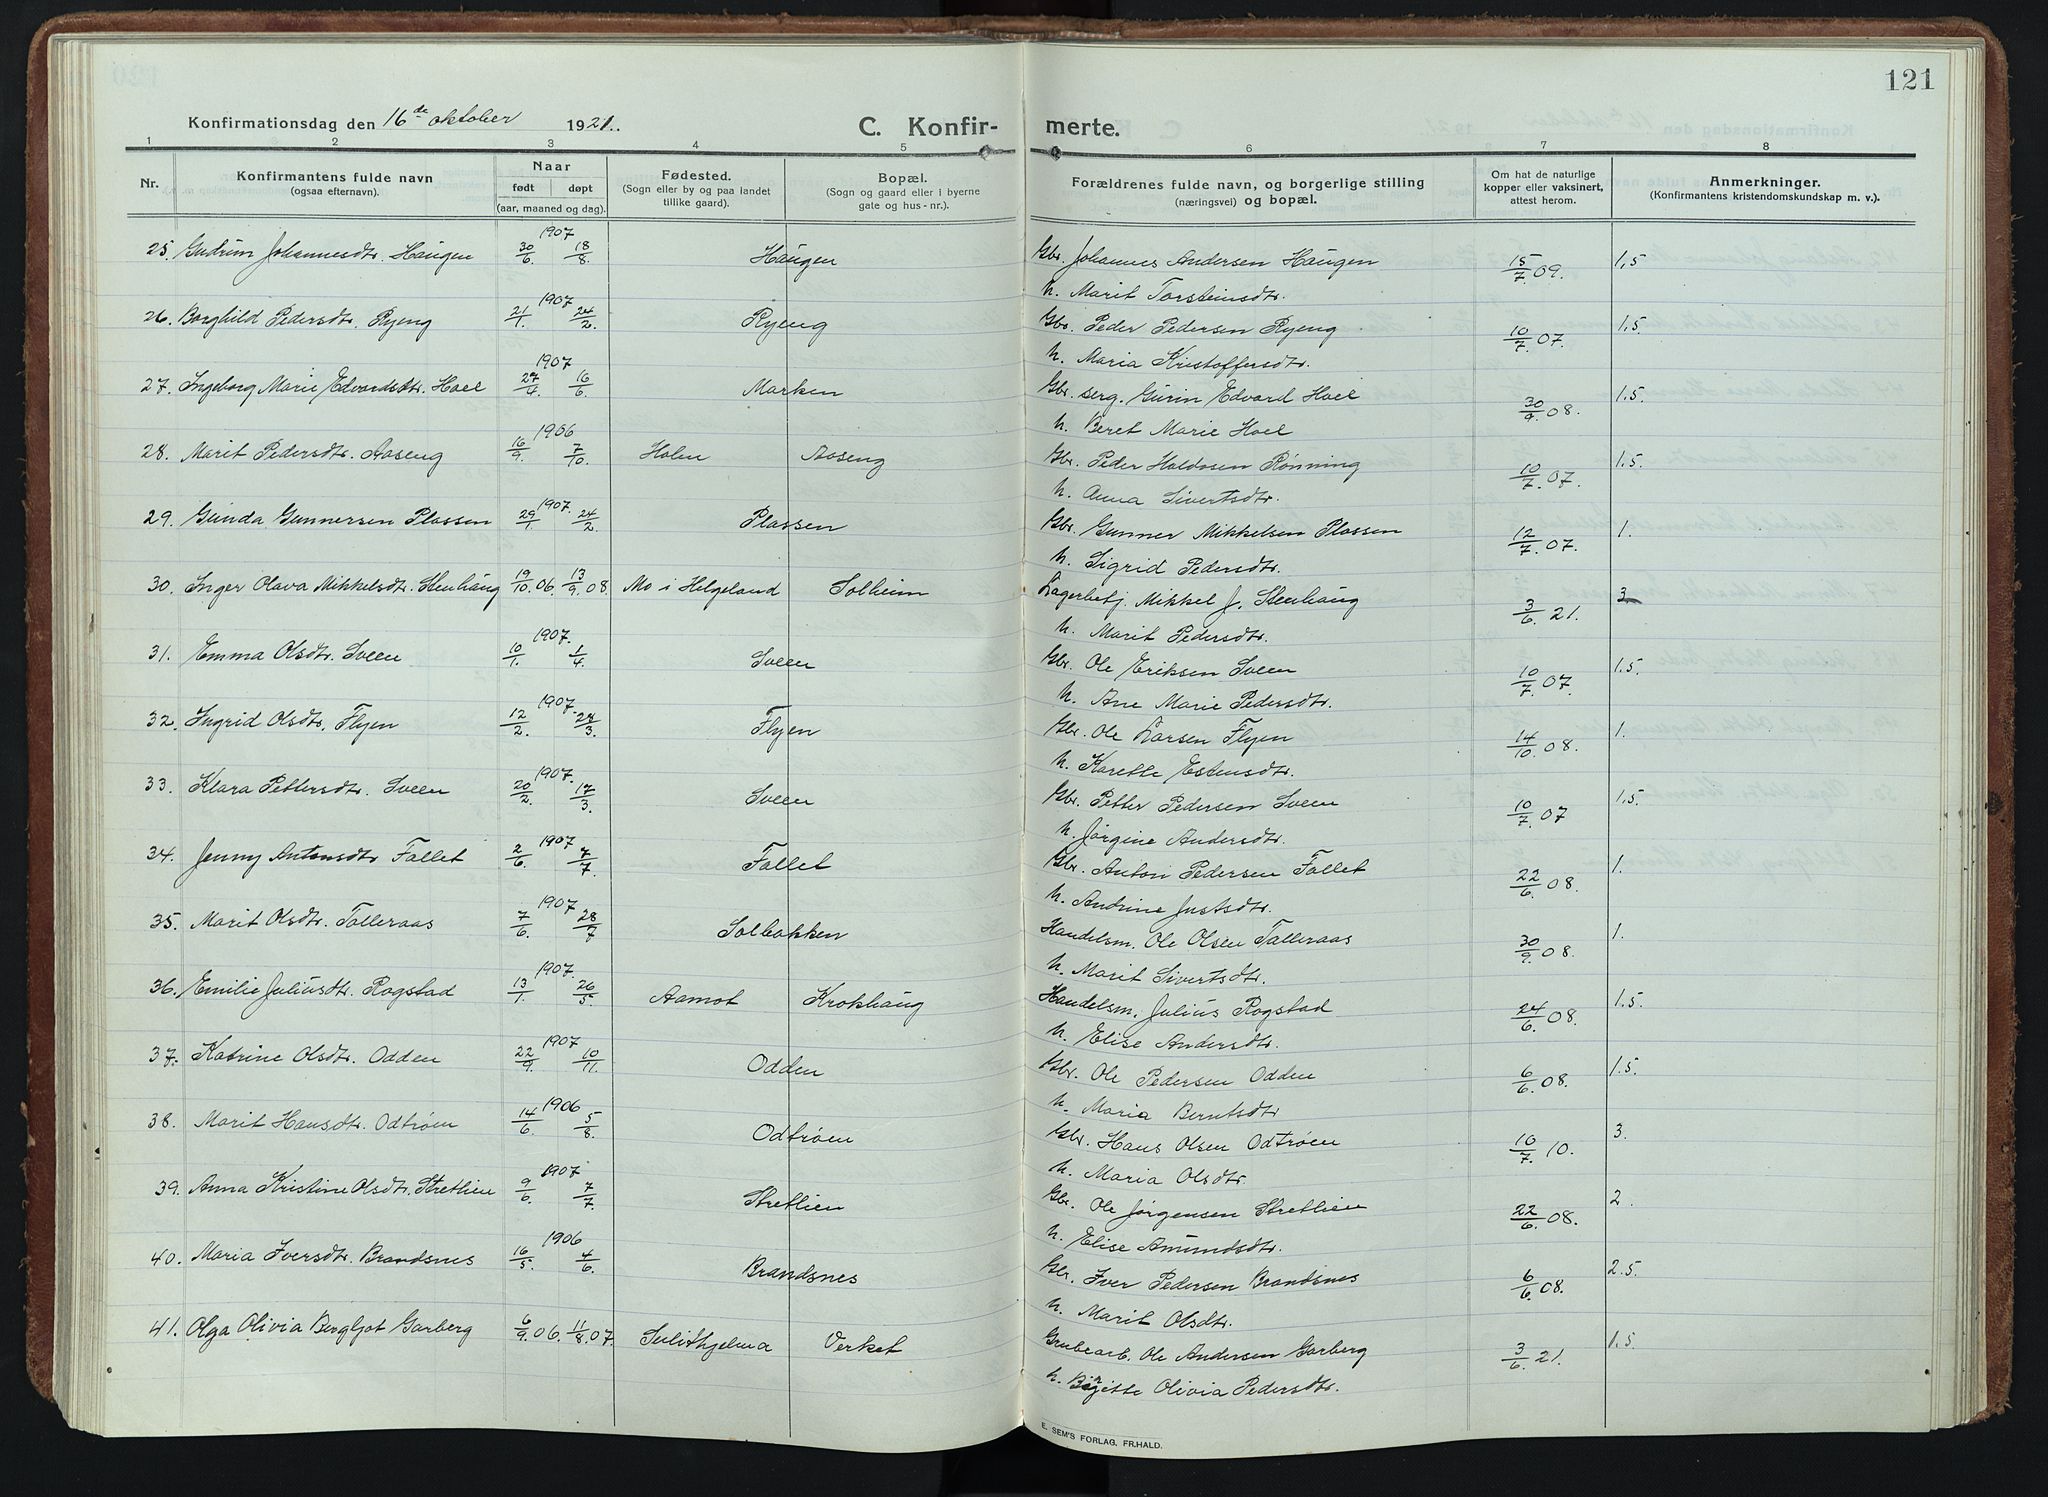 121
Konfirmationsdag den 16de oktober 1921.
C. Konfirmerte.
1 2 3 4 5 6 7 8
Nr.
Konfirmantens fulde navn
(ogsaa efternavn).
Naar
født døpt
(aar, maaned og dag).
Fødested.
(Sogn eller by og paa landet
tillike gaard).
Bopæl.
(Sogn og gaard eller i byerne
gate og hus-nr.).
Forældrenes fulde navn, og borgerlige stilling
(næringsvei) og bopæl.
Om hat de naturlige
kopper eller vaksinert,
attest herom.
Anmerkninger.
(Konfirmantens kristendomskundskap m. v.).
25. Gudrun Johannesdtr. Haugen 1907 30/6. 18/8. Haugen Gbr. Johannes Andersen Haugen 15/7 09. 1,5
h. Marit Torsteinsdtr.
26. Borghild Pedersdtr. Ryeng 1907 21/1. 24/2. Ryeng Gbr. Peder Pedersen Ryeng 10/7. 07. 1,5
h. Maria Kristoffersdtr.
27. Ingeborg Marie Edvardsdtr. Hoel 1907 27/4. 16/6. Marken Gbr. serg. Gurin Edvard Hoel 30/9 08. 1.5.
h. Beret Marie Hoel
28. Marit Pedersdtr. Aaseng 1906 16/9. 7/10. Holen Aaseng Gbr. Peder Haldosen Rønning 10/7. 07. 1.5.
h. Anna Sivertsdtr.
29. Gunda Gunnersen Plassen 1907. 29/1. 24/2. Plassen Gbr. Gunner Mikkelsen Plassen 12/7. 07. 1.
h. Sigrid Pedersdtr.
30. Inger Olava Mikkelsdtr. Stenhaug 19/10 06. 13/9. 08. Mo i Helgeland Solheim Lagerbetj. Mikkel J. Stenhaug 3/6. 21. 3
h. Marit Pedersdtr.
31. Emma Olsdtr. Sveen 1907. 10/1. 1/4. Sveen Gbr. Ole Eriksen Sveen 10/7. 07. 1.5.
h. Ane Marie Pedersdtr.
32. Ingrid Olsdtr. Flyen 1907. 12/2. 24/3. Flyen Gbr. Ole Larsen Flyen 14/10 08. 1.
h. Karette Estensdtr.
33. Klara Pettersdtr. Sveen 1907. 20/2. 17/3. Sveen Gbr. Petter Pedersen Sveen 10/7. 07 1.5.
h. Jørgine Andersdtr.
34. Jenny Antonsdtr Fallet 1907 2/6. 7/7. Fallet Gbr. Anton Pedersen Fallet 22/6. 08. 1.
h. Andrine Justsdtr.
35. Marit Olsdtr. Talleraas 1907 7/6. 28/7 Solbakken Handelsm. Ole Olsen Talleraas 30/9. 08. 1.
h. Marit Sivertsdtr.
36. Emilie Juliusdtr. Rogstad 1907. 13/1. 26/5. Aamot Krokhaug Handelsm. Julius Rogstad 24/6. 08. 1.5.
h. Elise Andersdtr.
37. Katrine Olsdtr. Odden 1907 22/9. 10/11. Odden Gbr. Ole Pedersen Odden 6/6. 08. 1.5.
h. Maria Berntsdtr
38. Marit Hansdtr. Odtrøen 1906 14/6. 5/8. Odtrøen Gbr. Hans Olsen Odtrøen 10/7. 10. 3.
h. Maria Olsdtr.
39. Anna Kristine Olsdtr. Stretlien 1907 9/6. 7/7. Stretlien Gbr. Ole Jørgensen Stretlien 22/6. 08. 2.
h. Elise Amundsdtr.
40. Maria Iversdtr. Brandsnes 1906 16/5. 4/6. Brandsnes Gbr. Iver Pedersen Brandsnes 6/6. 08. 2.5.
h. Marit Olsdtr.
41. Olga Olivia Bergljot Garberg 6/9. 06. 11/8. 07. Sulithjelma Verket Grubearb. Ole Andersen Garberg 3/6. 21. 1.5.
h. Birgitte Olivia Pedersdtr.
E. SEM'S FORLAG, FR.HALD.